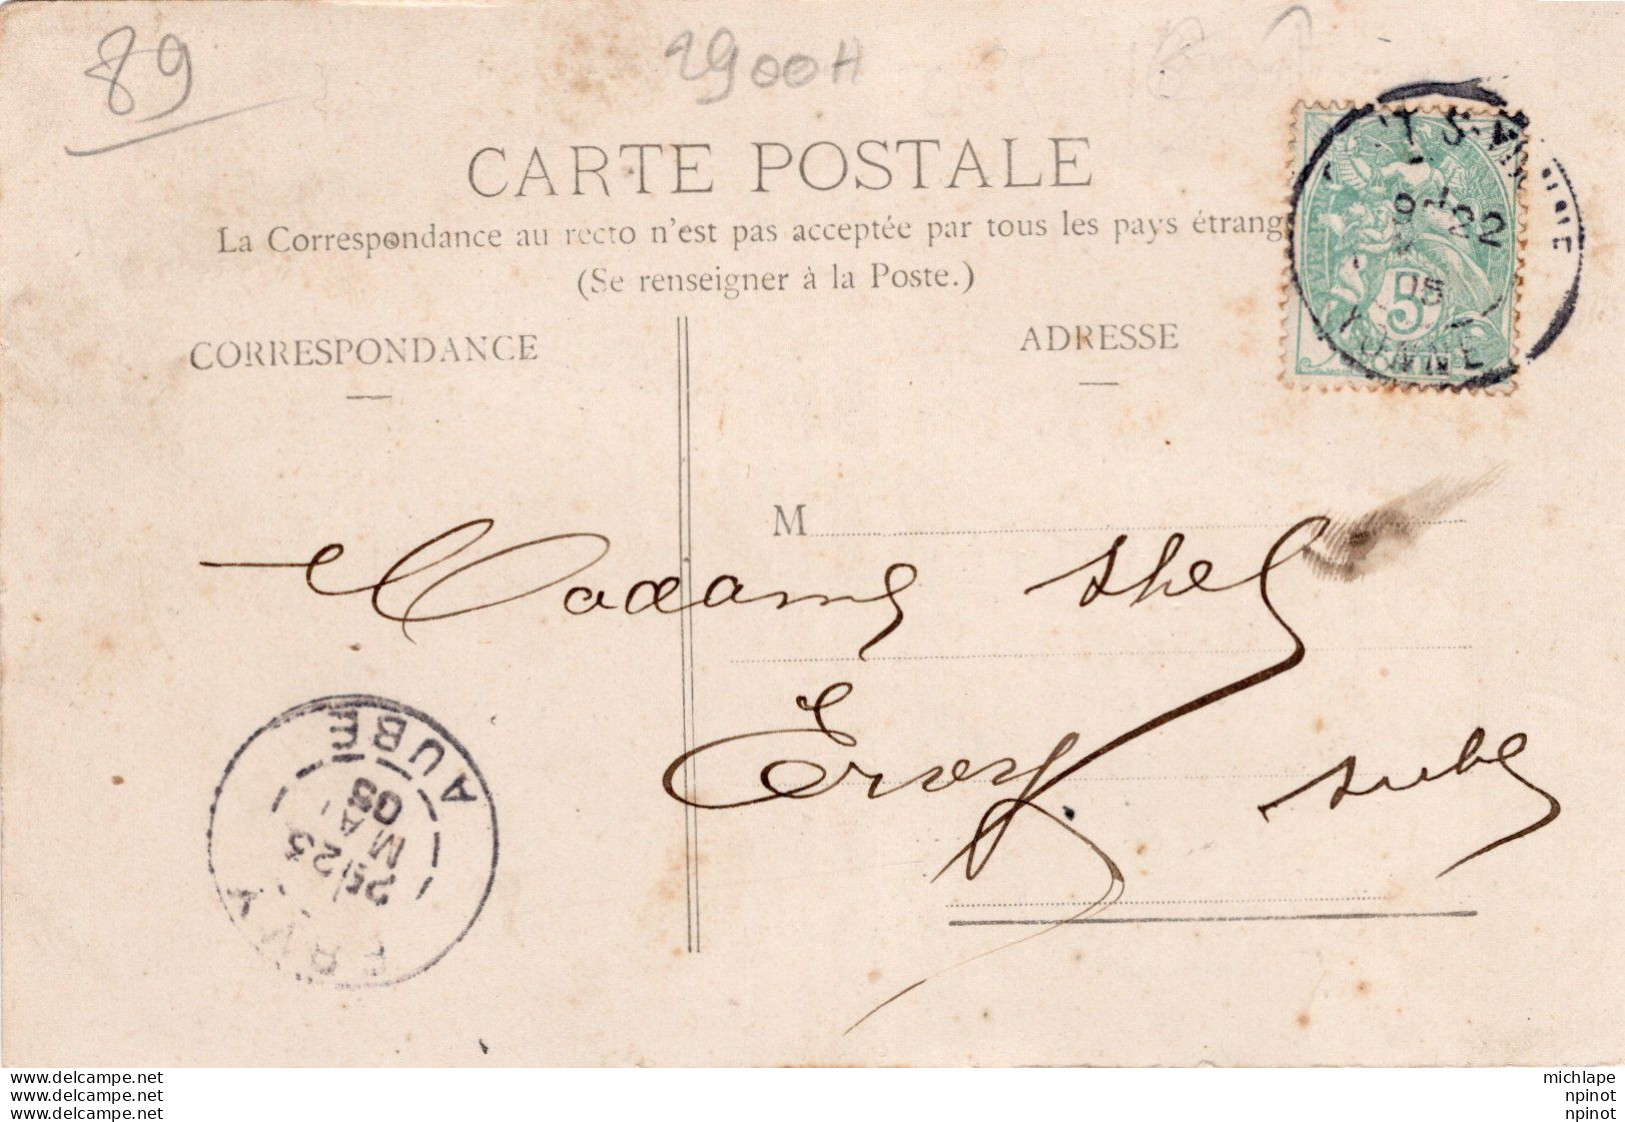 89
2900H
CARTE POSTALE
La Correspondance au recto n'est pas acceptée par tous les pays étrang
(Se renseigner à la Poste.)
CORRESPONDANCE
ADRESSE
9 22
05
5
YONNE
M
Madame
Ervy Aube
AUBE
05
MA
25
ERVY
www.delcampe.net
www.delcampe.net
www.delcampe.net
michlape
npinot
npinot